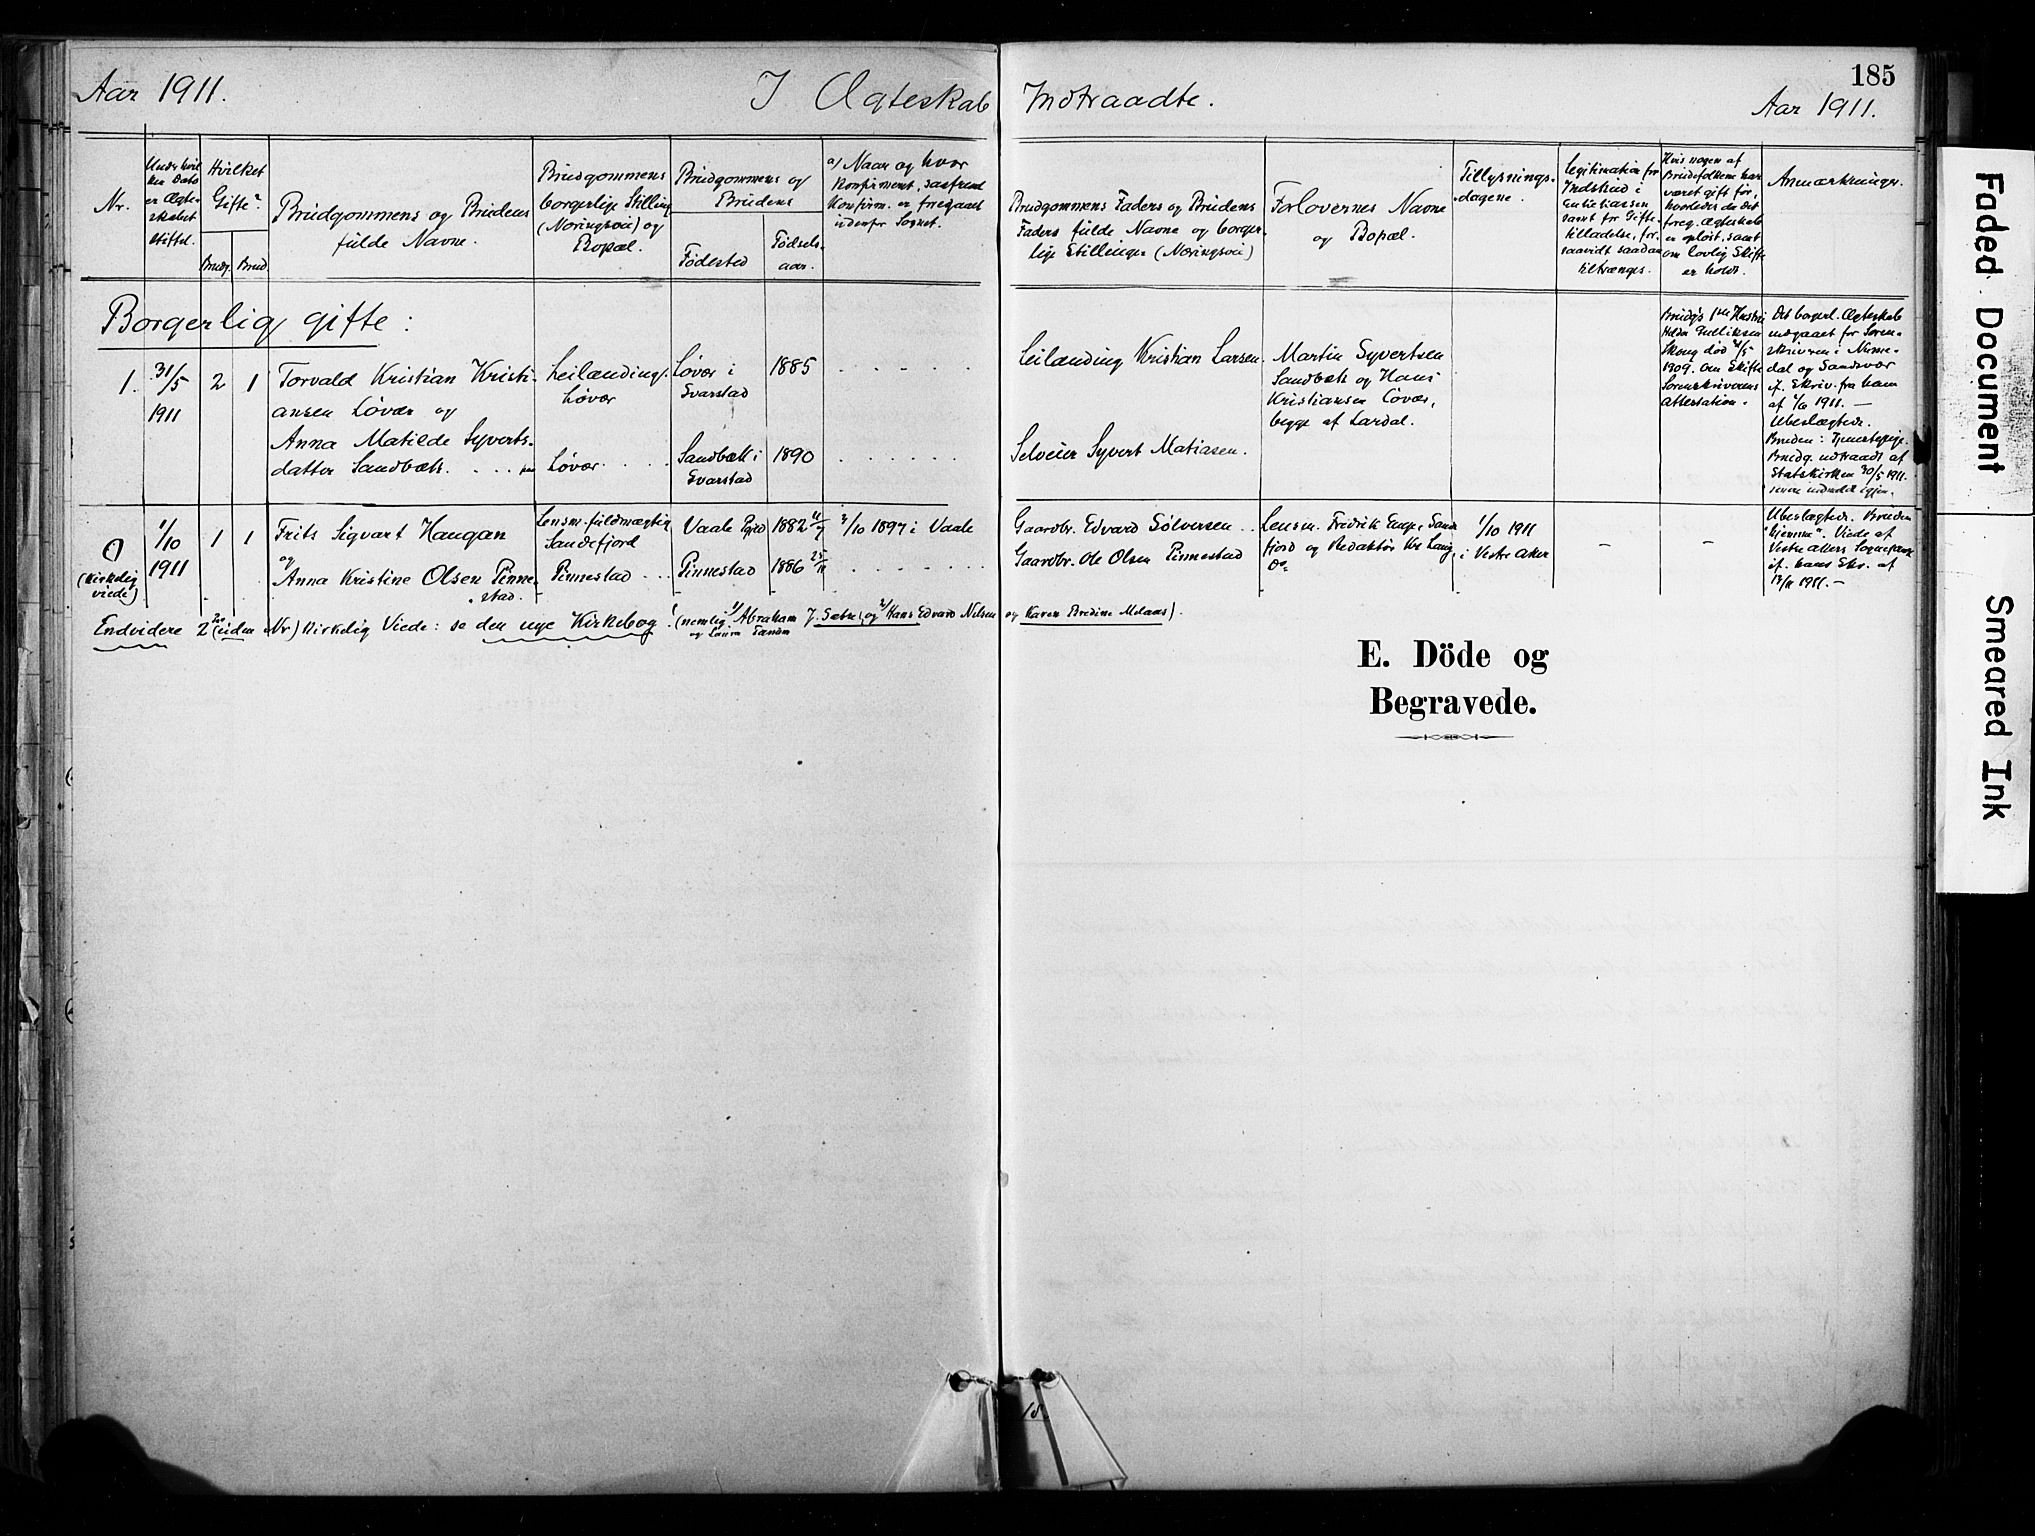 185
Aar 1911. I Ægteskab Indtraadte. Aar 1911.
Nr.
Under hvil
ken Dato
er Ægte-
skabet
stiftet.
Hvilket
Gifte?
Brudg. Brud.
Brudgommens og Brudens
fulde Navne.
Brudgommens
borgerlige Stilling
(Næringsvei) og
Bopæl.
Brudgommens og
Brudens
Fødested
Fødsels-
aar.
a) Naar og hvor
Konfirmeret, saafremt
Konfirm. er foregaaet
udenfor Sognet.
Brudgommens Faders og Brudens
Faders fulde Navne og borger-
lige Stillinger (Næringsvei)
Forlovernes Navne
og Bopæl.
Tillysnings-
dagene.
Legitimation for
Indskud i
Enkekassen
samt for Gifte-
tilladelse, for-
saavidt saadan
tiltrænges.
Hvis nogen af
Brudefolkene har
været gift før,
hvorledes da det
foreg. Ægteskab
er opløst, samt
om lovlig Skifte
er holdt.
Anmærkninger.
Borgerlig gifte:
1. 31/5 1911 2 1
Torvald Kristian Kristi-
ansen Løvær og
Anna Matilde Syverts-
datter Sandbæk.
Leilænding,
Løvær
Løvær.
Løvær i
Svarstad
Sandbæk i
Svarstad
1885
1890
Leilænding Kristian Larsen.
Selveier Syvert Matiasen.
Martin Syvertsen
Sandbæk og Hans
Kristiansen Løvær,
begge af Lardal.
Brudg's 1ste Hustru
Helda Gulliksen
Skoug død /5
1909. Om Skifte
Sorenskriverens
Attestation.
Det borgerl. Ægteskab
indgaaet for Soren-
skriveren i Nume-
dal og Sandsvær
cf. Skriv. fra ham
af 1/6 1911. —
Ubeslægtede.
Bruden: Tjenestepige.
Brudg. udtraadt af
Statskirken 30/5 1911.
senere indmeldt igjen.
0
(Kirkelig
viede)
1/10
1911
1 1
Frits Sigvart Haugan
og
Anna Kristine Olsen Pinne-
stad.
Lensm.fuldmægtig
Sandefjord
Pinnestad
Vaale Pgjd
Pinnestad
1882 11/7
1886 25/11
3/10 1897 i Vaale
Gaardbr. Edvard Sølversen
Gaardbr. Ole Olsen Pinnestad
Lensm. Fredrik Enge, Sande
fjord og Redaktør Kr. Laug,
Do
1/10 1911
i Vestre Aker
Ubeslægtede. Bruden
"hjemme". Viede af
Vestre Akers Sognepræst
if. hans Skr. af
13/11 1911. —
Endvidere 2 (uden Nr) Kirkelig Viede: se den nye Kirkebog! (nemlig 1/ Abraham J. Sætre og 2/ Hans Edvard Nilsen og Karen Bredine Melaas).
og Laura Tandn
E. Döde og
Begravede.
Faded Document
Smeared Ink